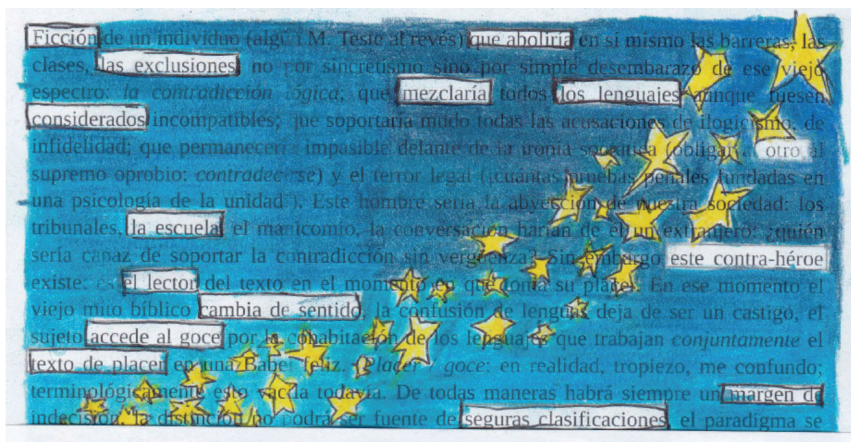 Ficción de un individuo (algún M. Teste al revés) que aboliría en sí mismo las barreras, las
clases, las exclusiones, no por sincretismo sino por simple desembarazo de ese viejo
espectro: la contradicción lógica; que mezclaría todos los lenguajes aunque fuesen
considerados incompatibles; que soportaría mudo todas las acusaciones de ilogicismo, de
infidelidad; que permanecería impasible delante de la ironía socrática (obligar al otro al
supremo oprobio: contradecirse) y el terror legal (¡cuántas pruebas penales fundadas en
una psicología de la unidad!). Este hombre sería la abyección de nuestra sociedad: los
tribunales, la escuela, el manicomio, la conversación harían de él un extranjero: ¿quién
sería capaz de soportar la contradicción sin vergüenza? Sin embargo este contra-héroe
existe: es el lector del texto en el momento en que toma su placer. En ese momento el
viejo mito bíblico cambia de sentido, la confusión de lenguas deja de ser un castigo, el
sujeto accede al goce por la cohabitación de los lenguajes que trabajan conjuntamente el
texto de placer en una Babel feliz. (Placer goce: en realidad, tropiezo, me confundo;
terminológicamente esto vacila todavía. De todas maneras habrá siempre un margen de
indecisión, la distinción no podrá ser fuente de seguras clasificaciones, el paradigma se